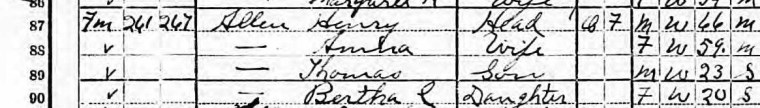 86 Margaret R Wife F W 59 m
87 Fm 261 267 Allen Henry Head O F m W 66 m
88 v — Wife F W 59 m
89 v — Thomas Son m W 23 S
90 v — Bertha E Daughter F W 20 S